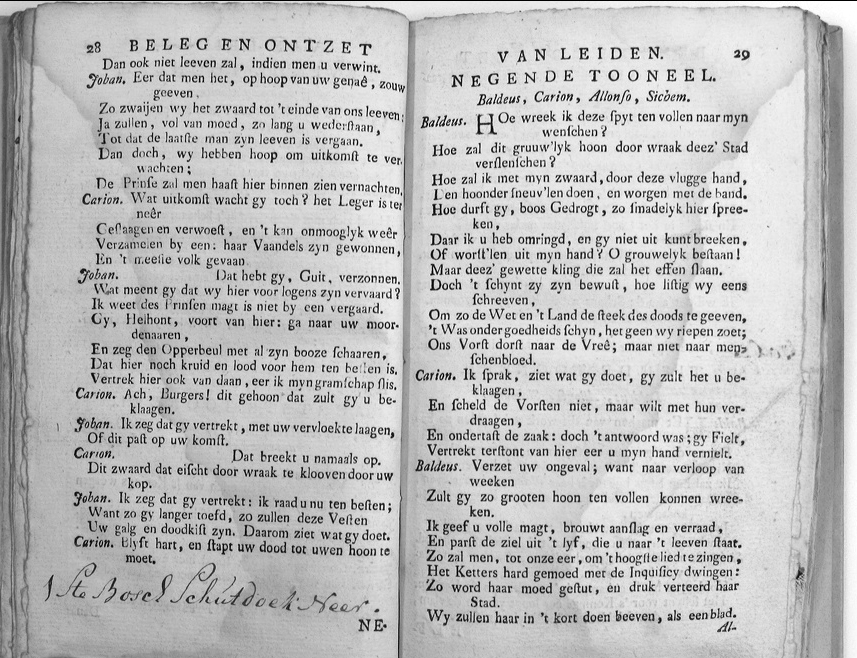 28 BELEG EN ONTZET
Dan ook niet leeven zal, indien men u verwint.
Joban. Eer dat men het, op hoop van uw genaê, zouw
geeven.
Zo zwaijen wy het zwaard tot 't einde van ons leeven;
Ja zullen, vol van moed, zo lang u wederſtaan,
Tot dat de laatſte man zyn leeven is vergaan.
Dan doch, wy hebben hoop om uitkomſt te ver-
wachten;
De Prinſe zal men haaſt hier binnen zien vernachten.
Carion. Wat uitkomſt wacht gy toch? het Leger is ter
neêr
Geſlaagen en verwoeſt, en 't kan onmooglyk weêr
Verzamelen by een: haar Vaandels zyn gewonnen,
En 't meeſte volk gevaan.
Joban. Dat hebt gy, Guit, verzonnen.
Wat meent gy dat wy hier voor logens zyn vervaard?
Ik weet des Prinſen magt is niet by een vergaard.
Gy, Helhont, voort van hier: ga naar uw moor-
denaaren,
En zeg den Opperbeul met al zyn booze ſchaaren,
Dat hier noch kruid en lood voor hem ten beſten is.
Vertrek hier ook van daan, eer ik myn gramſchap ſlis.
Carion. Ach, Burgers! dit gehoon dat zult gy u be-
klaagen.
Joban. Ik zeg dat gy vertrekt, met uw vervloekte laagen,
Of dit paſt op uw komſt.
Carion. Dat breekt u namaals op.
Dit zwaard dat eiſcht door wraak te klooven door uw
kop.
Joban. Ik zeg dat gy vertrekt: ik raad u nu ten beſten;
Want zo gy langer toefd, zo zullen deze Veſten
Uw galg en doodkiſt zyn. Daarom ziet wat gy doet.
Carion. Blyft hart, en ſtapt uw dood tot uwen hoon te
moet.
Bosch Schutdoek Neer.
NE-
VAN LEIDEN. 29
NEGENDE TOONEEL.
Baldeus, Carion, Allonſo, Sichem.
Baldeus. HOe wreek ik deze ſpyt ten vollen naar myn
wenſchen?
Hoe zal dit gruuw'lyk hoon door wraak deez' Stad
verſlenſchen?
Hoe zal ik met myn zwaard, door deze vlugge hand,
Een hoonder ſneuv'len doen, en worgen met de hand.
Hoe durft gy, boos Gedrogt, zo ſmadelyk hier ſpree-
ken,
Daar ik u heb omringd, en gy niet uit kunt breeken,
Of worſt'len uit myn hand? O grouwelyk beſtaan!
Maar deez' gewette kling die zal het effen ſlaan.
Doch 't ſchynt zy zyn bewuſt, hoe liſtig wy eens
ſchreeven,
Om zo de Wet en 't Land de ſteek des doods te geeven,
't Was onder goedheids ſchyn, het geen wy riepen zoet;
Ons Vorſt dorſt naar de Vreê; maar niet naar men-
ſchenbloed.
Carion. Ik ſprak, ziet wat gy doet, gy zult het u be-
klaagen,
En ſcheld de Vorſten niet, maar wilt met hun ver-
draagen,
En ondertaſt de zaak: doch 't antwoord was; gy Fielt,
Vertrekt terſtont van hier eer u myn hand vernielt.
Baldeus. Verzet uw ongeval; want naar verloop van
weeken
Zult gy zo grooten hoon ten vollen konnen wree-
ken.
Ik geef u volle magt, brouwt aanſlag en verraad,
En parſt de ziel uit 't lyf, die u naar 't leeven ſtaat.
Zo zal men, tot onze eer, om 't hoogſte lied te zingen,
Het Ketters hard gemoed met de Inquiſicy dwingen:
Zo word haar moed geſtut, en druk verteerd haar
Stad.
Wy zullen haar in 't kort doen beeven, als een blad.
Al-